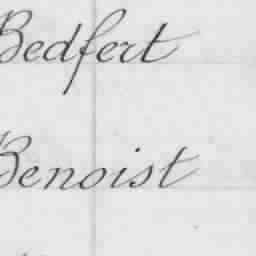 Bedfert
Benoist